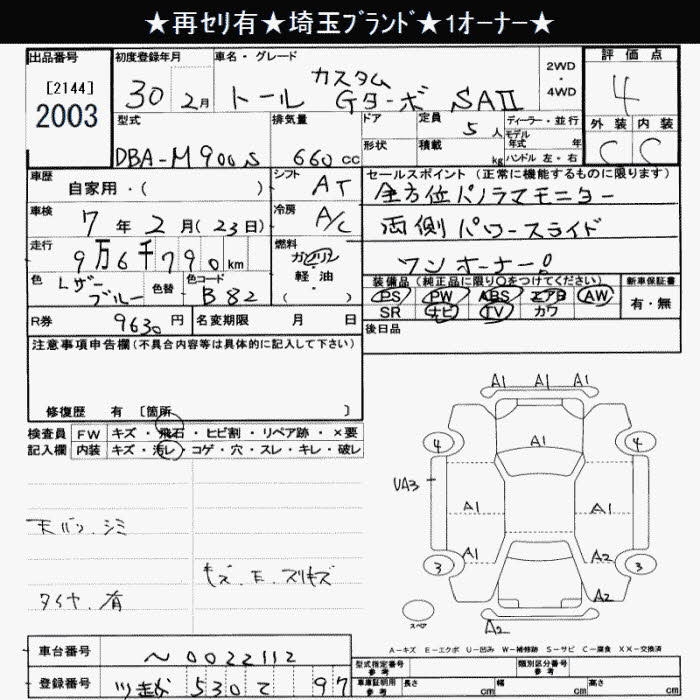 ★再セリ有★埼玉ブランド★1オーナー★
出品番号
[2144]
2003
初度登録年月
30 2月
車名・グレード
カスタム
トール Gターボ SAII
2WD
・
4WD
評価点
4
外装 内装
C C
型式
DBA-M900S
排気量
660 cc
ドア
形状
定員
5 人
積載
kg
ディーラー・並行
モデル年式 年
ハンドル 左・右
車歴
自家用・( )
シフト
AT
セールスポイント (正常に機能するものに限ります)
全方位パノラマモニター
両側パワースライド
ワンオーナー!
車検
7年2月(23日)
冷房
A/C
走行
9万6千790km
燃料
ガソリン
・
軽・油
( )
色
Lザー
ブルー
色替
色コード
B82
装備品 (純正品に限り○をつけてください)
PS PW ABS エアB AW
SR ナビ TV カワ
新車保証書
有・無
R券
9630円
名変期限 月 日
後日品
注意事項申告欄(不具合内容等は具体的に記入して下さい)
修復歴 有 [箇所 ]
検査員
記入欄
FW キズ・飛石・ヒビ割・リペア跡・×要
内装 キズ・汚レ・コゲ・穴・スレ・キレ・破レ
天バリ、シミ
キズ、E、スリキズ
タイヤ、有
A1 A1 A1
4 A1 4
UA3
A1 A1
A1 A2
3 3
スペア
A2
A-キズ E-エクボ U-凹み W-補修跡 S-サビ C-腐食 XX-交換済
車台番号
0022112
登録番号
530 て 97
型式指定番号
参考
類別区分番号
参考
車庫証明用
参考
長さ cm 幅 cm 高さ cm